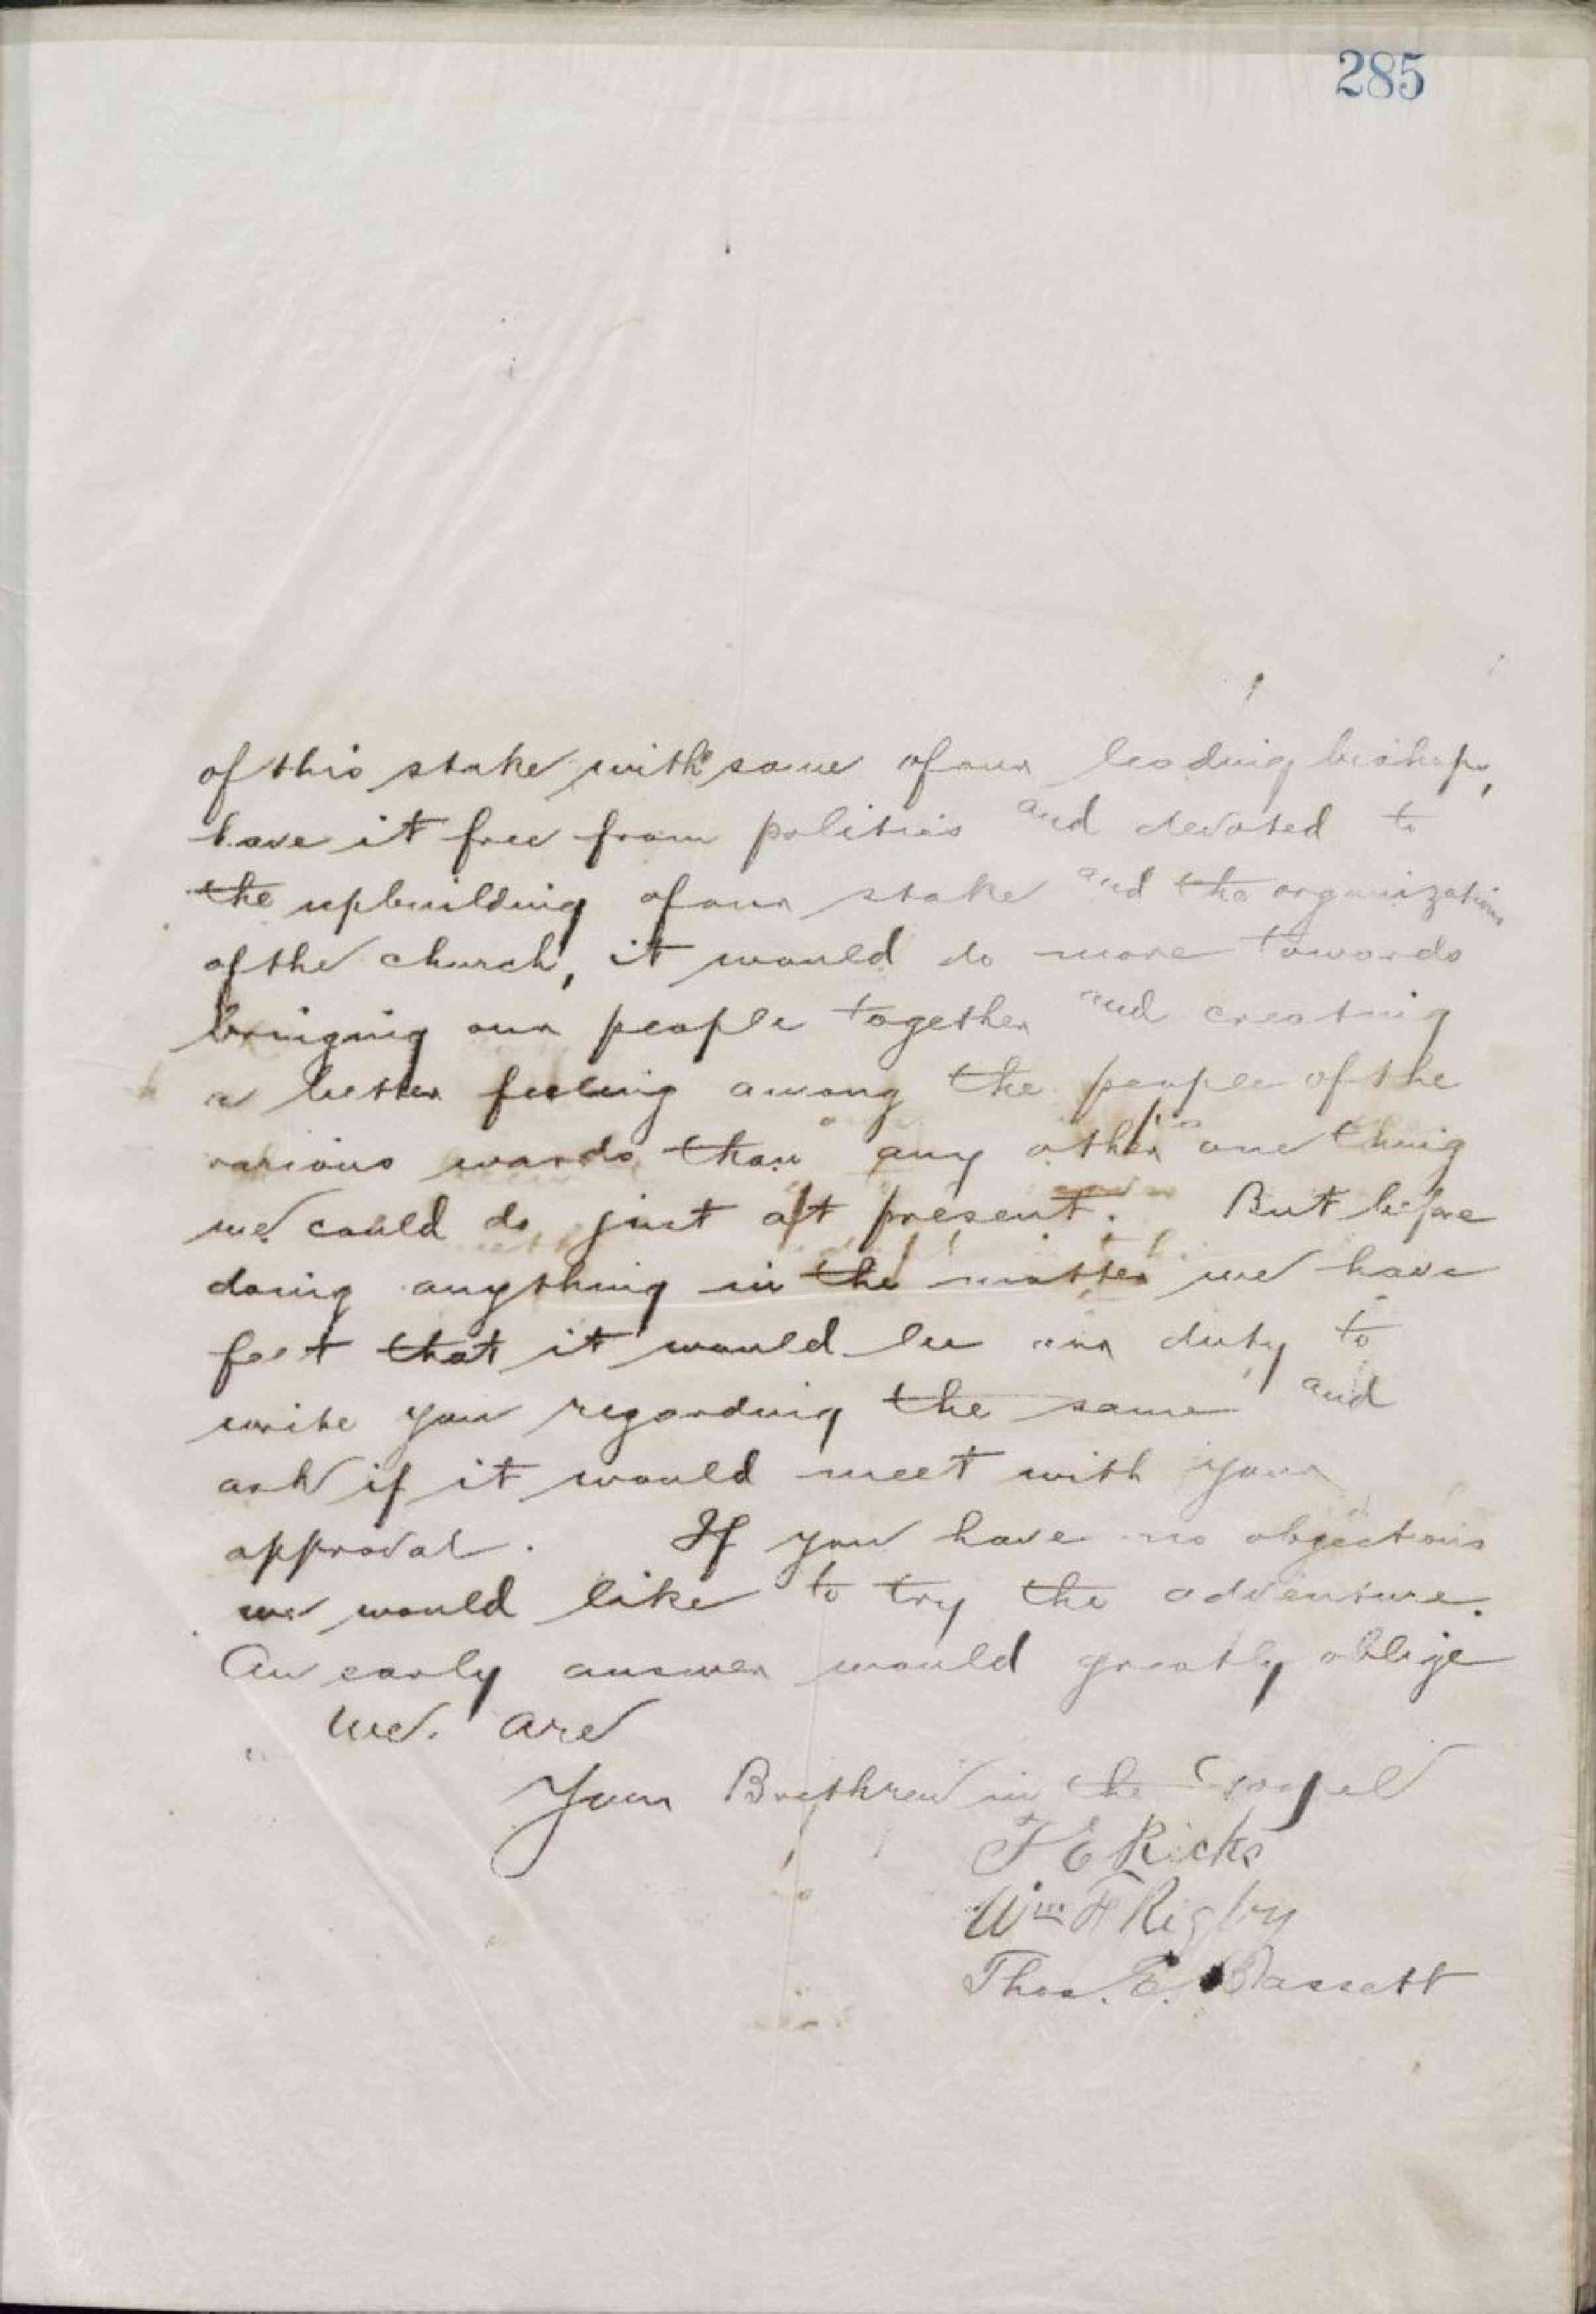 285
of this stake with some of our leading bishops,
have it free from politics and devoted to
the upbuilding of our stake and the organizations
of the church, it would do more towards
bringing our people together and creating
a better feeling among the people of the
various wards than any other one thing
we could do just at present. But before
doing anything in the matter we have
felt that it would be our duty to
write you regarding the same and
ask if it would meet with your
approval. If you have no objections
we would like to try the adventure.
An early answer would greatly oblige
We. are
Your Brethren in the Gospel
T E Ricks
Wm F Rigby
Thos. E. Bassett